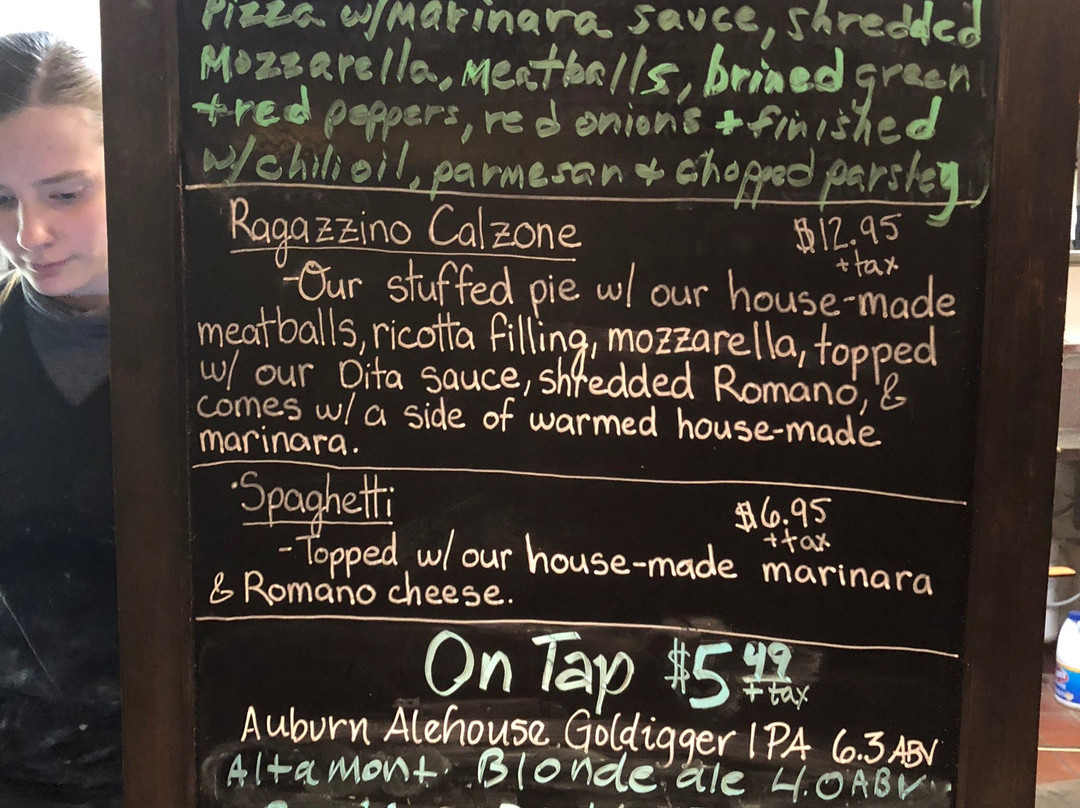 Pizza w/marinara sauce, shredded
Mozzarella, Meatballs, brined green
+ red peppers, red onions + finished
w/chili oil, parmesan + chopped parsley
Ragazzino Calzone $12.95
+tax
-Our stuffed pie w/ our house-made
meatballs, ricotta filling, mozzarella, topped
w/ our Dita sauce, shredded Romano, &
comes w/ a side of warmed house-made
marinara.
·Spaghetti $6.95
+tax
-Topped w/our house-made marinara
& Romano cheese.
On Tap $5 49
+tax
Auburn Alehouse Goldigger IPA 6.3 ABV
Altamont Blonde ale 4.0 ABV